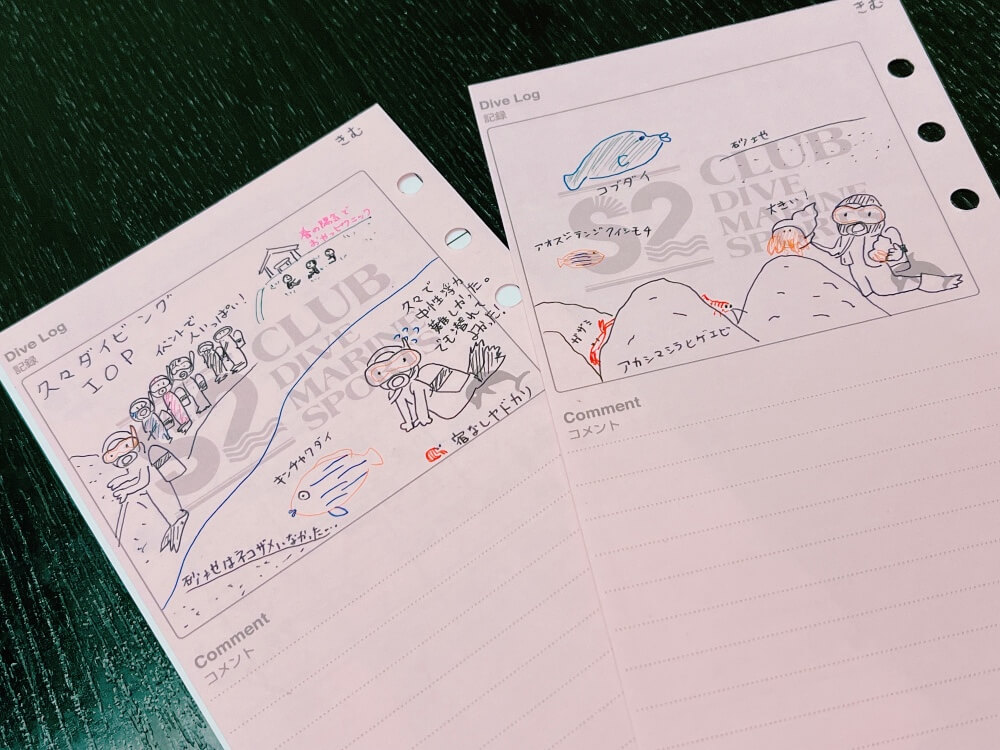 きむ
Dive Log
記録
久々ダイビング
IOP
イベントで
人いっぱい!
春の陽気で
おやつピクニック
久々で
中性浮力
難しかった。
でも潜れて
よかた!
宿なしヤドカリ
キンチャクダイ
砂地はネコザメいなかった…
S2 CLUB
DIVE
MARINE
SPO
Comment
コメント
きむ
Dive Log
記録
コブダイ
砂地
大きい!
アオスジテンジクイシモチ
ガザミ
アカシマシラヒゲエビ
S2 CLUB
DIVE
MARINE
SPO
Comment
コメント